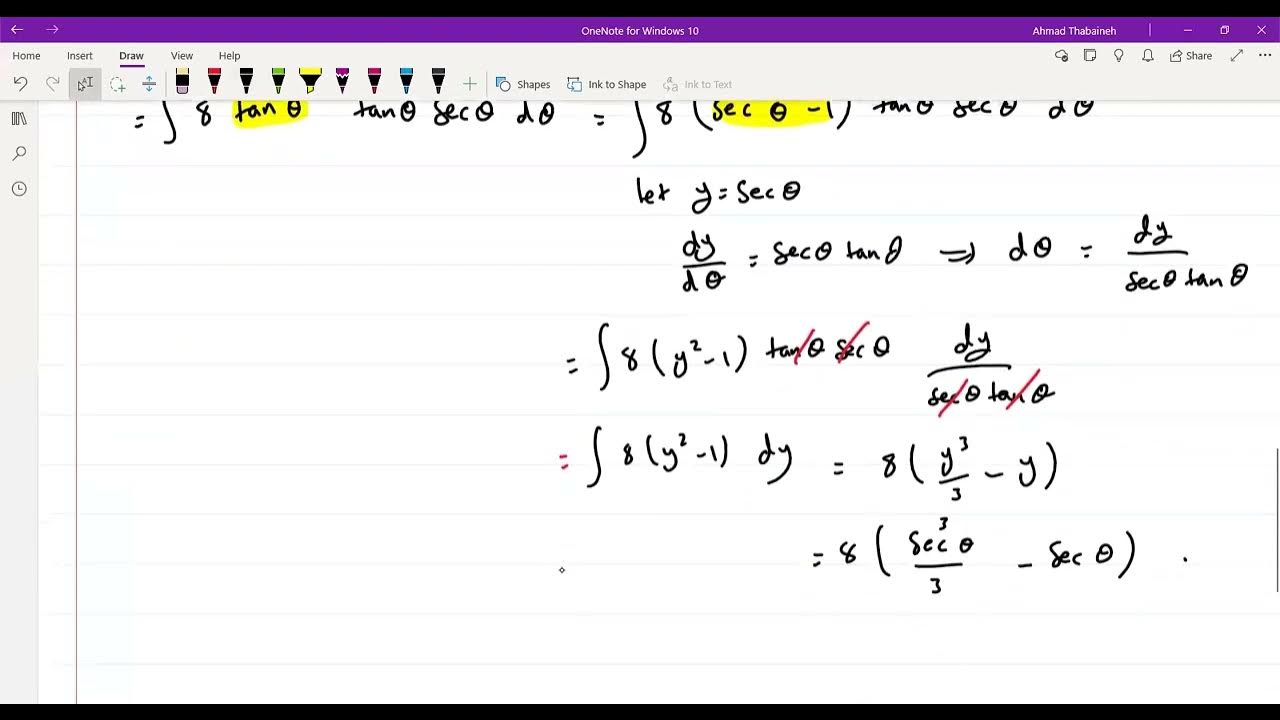 OneNote for Windows 10
Ahmad Thabaineh
Home Insert Draw View Help
Share
Shapes Ink to Shape Ink to Text
= ∫ 8 tan θ tan θ sec θ dθ = ∫ 8 (sec θ - 1) tan θ sec θ dθ
let y = sec θ
dy/dθ = sec θ tan θ ⇒ dθ = dy/(sec θ tan θ)
= ∫ 8 (y² - 1) tan θ sec θ dy/(sec θ tan θ)
= ∫ 8 (y² - 1) dy = 8 (y³/3 - y)
= 8 (sec³ θ/3 - sec θ) .